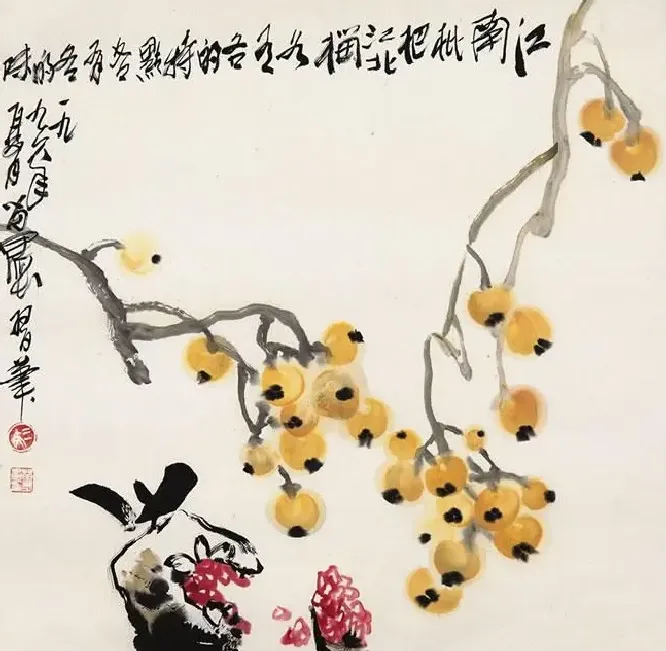 江南枇杷江北榴各有各的特點各有各的味
一九
九六年
夏月習筆